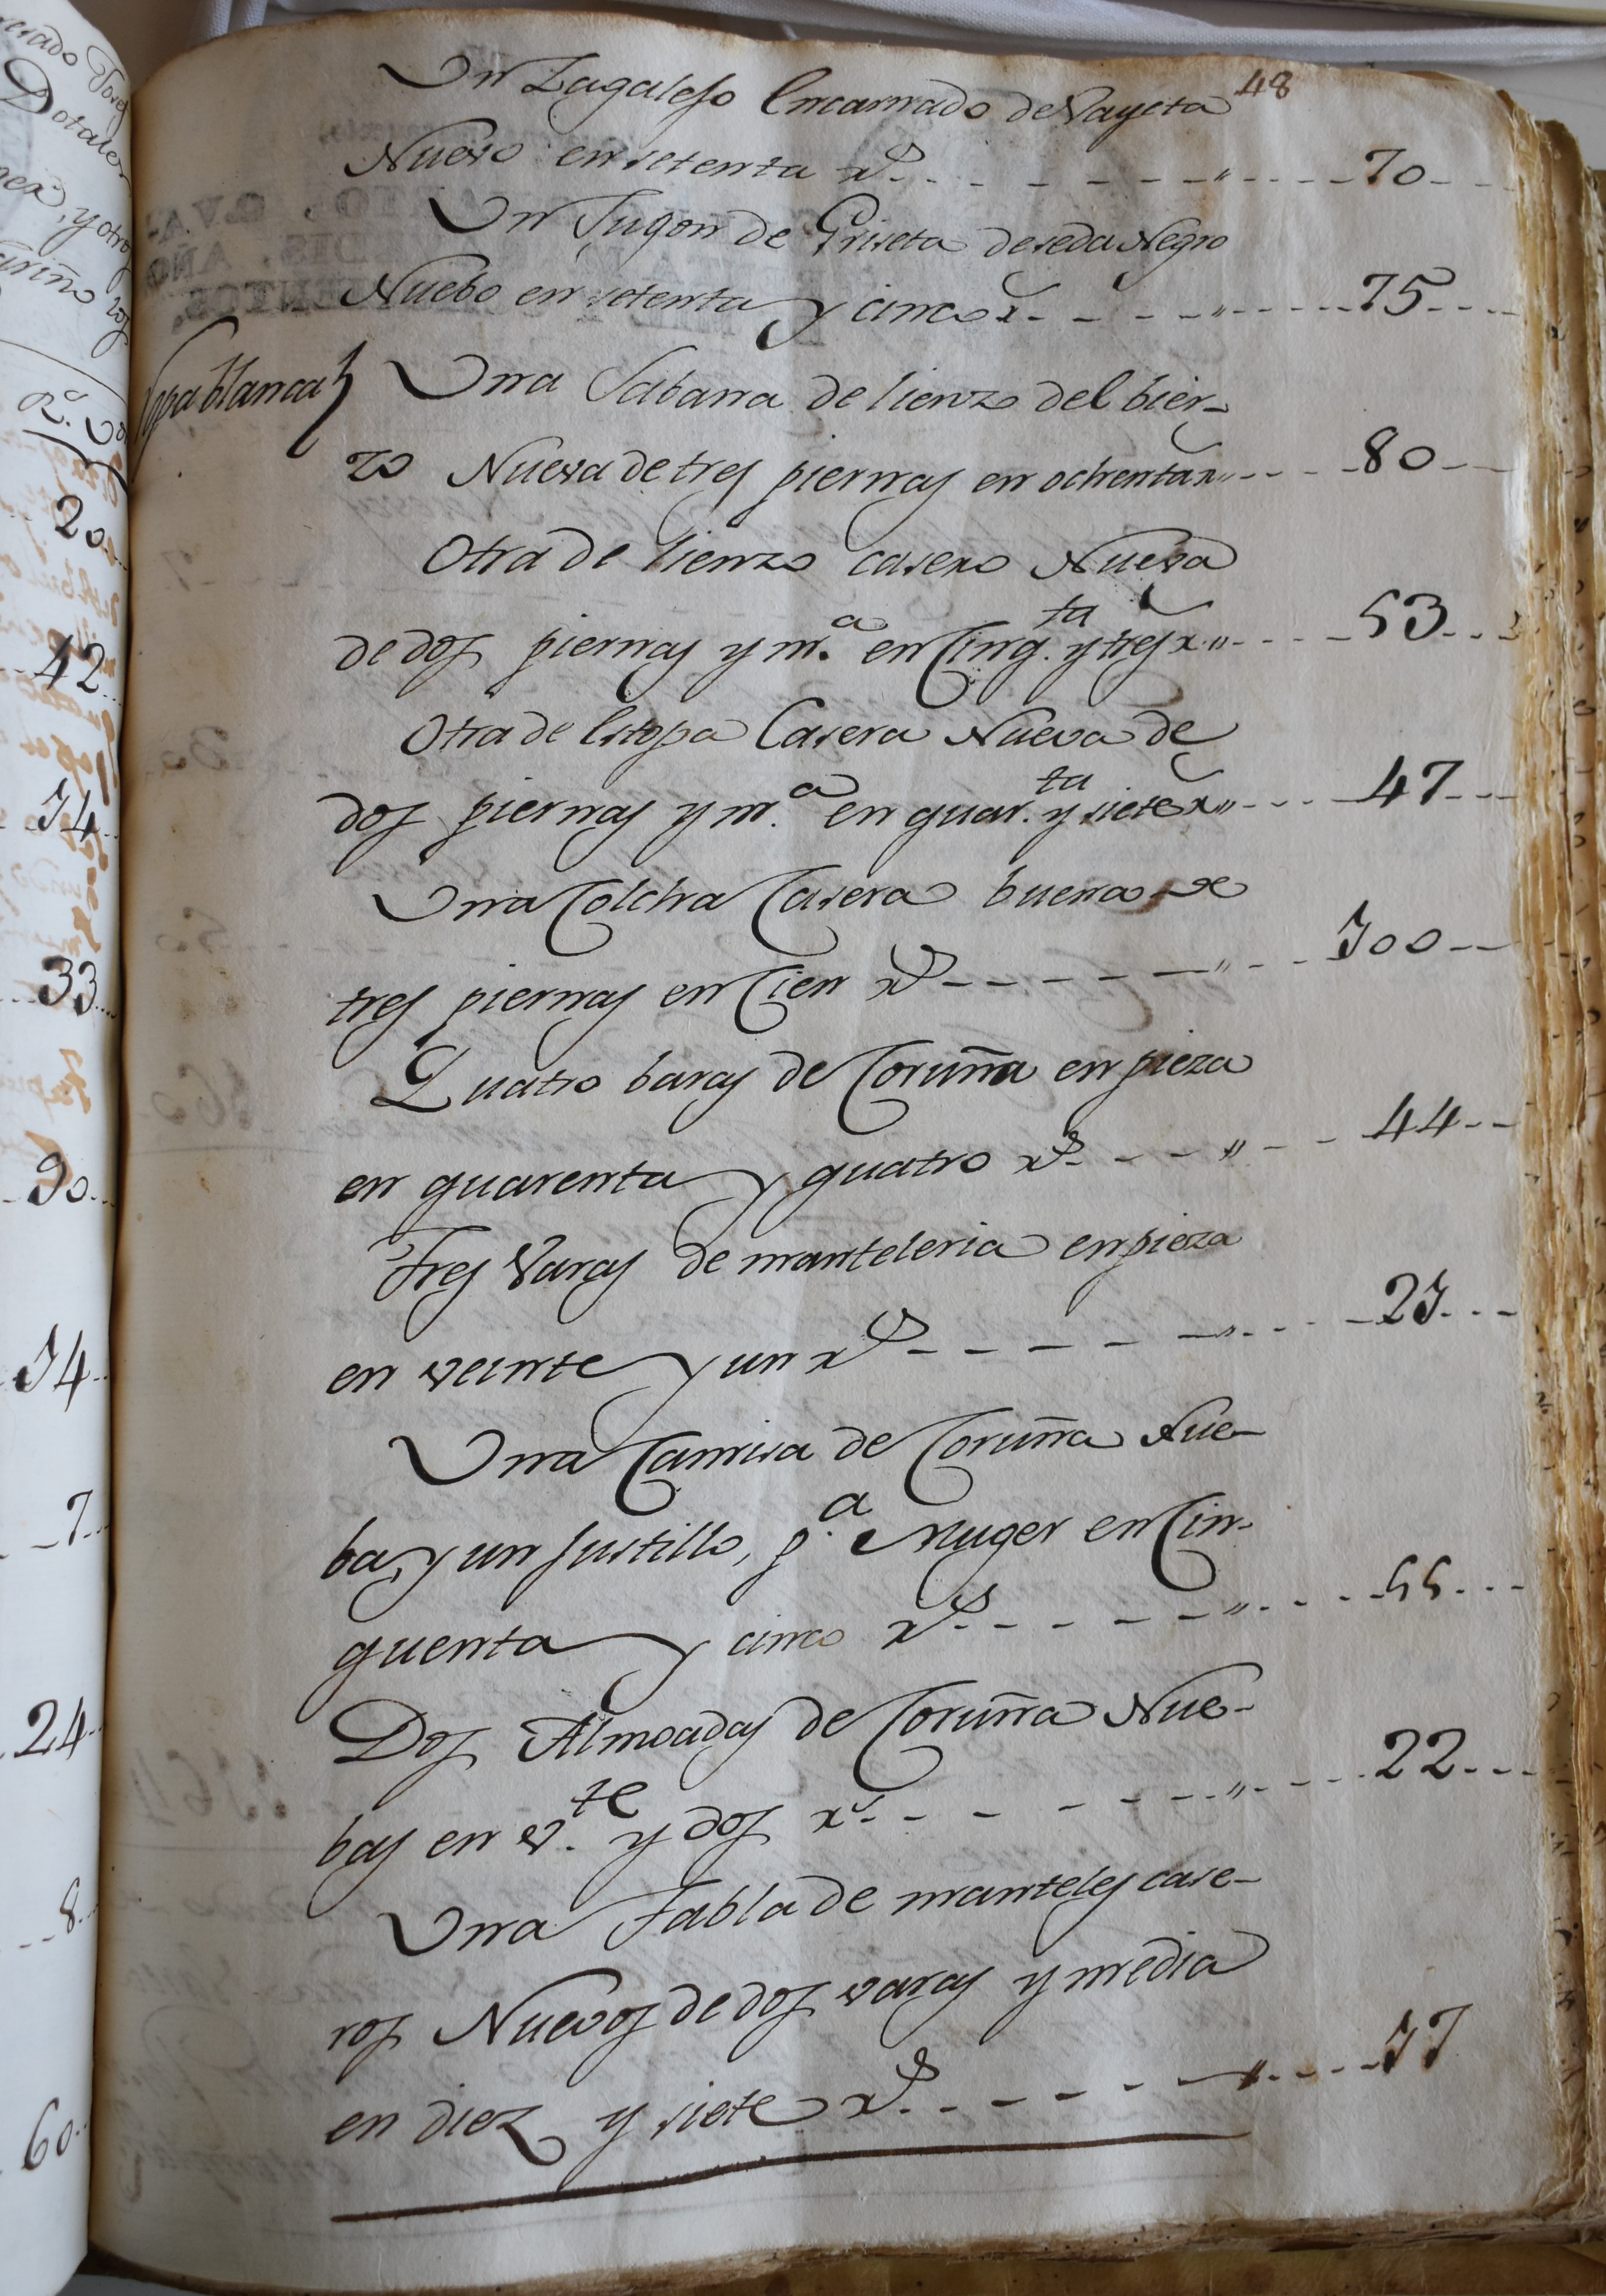 48
Un Zagalejo Encarnado de Vayeta
Nuevo en setenta rs. - - - - - - - " - - - - 70 - -
Un Jugon de Griseta de seda Negro
Nuebo en setenta y cinco r. - - - - " - - - - 75 - - -
Ropa blanca
Una Sabana de lienzo del bier-
zo Nueva de tres piernas en ochenta r " - - - 80 - -
Otra de lienzo casero Nueva
de dos piernas y m.a en Cinq.ta y tres r. " - - - - 53 - - -
Otra de Estopa Casera Nueva de
dos piernas y m.a en quar.ta y siete r " - - - - 47 - - -
Una Colcha Casera buena de
tres piernas en Cien rs - - - - - - " - - - 100 - -
Quatro baras de Coruña en pieza
en quarenta y quatro rs. - - - - " - - - 44 - -
Tres Varas de manteleria en pieza
en veinte y un rs - - - - - - " - - - - 21 - - -
Una Camisa de Coruña Nue-
ba, y un Justillo, p.a Muger en Cin-
quenta y cinco rs. - - - - - - " - - - - 55 - - -
Dos Almoadas de Coruña Nue-
bas en v.te y dos r. - - - - - - - " - - - - 22 - - -
Una Tabla de manteles case-
ros Nuevos de dos varas y media
en diez y siete rs. - - - - - - " - - - - 17
20
42
14
33
90
14
7
24
8
60